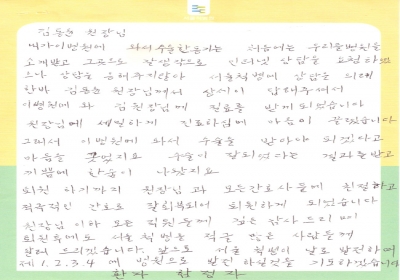 김동윤 원장님
제가 이병원에 와서 수술한동기는 처음에는 우리들병원을
소개받고 그곳으로 갈생각으로 인터넷 상담을 요청하였
으나 상담을 응해주지않아 서울척병에 상담을 의뢰
한바 김동윤 원장님께서 상세히 답해주셔서
이병원에 와 김원장님에 진료를 받게되었습니다
원장님에 세밀하게 진료하심에 마음이 끌렸습니다
그래서 이병원에 와서 수술을 받아야 되겠다고
마음을 굳혔지요 수술이 잘되었다는 결과를받고
기쁨에 한숨이 나왔지요
퇴원 하기까지 원장님과 모든간호사들에 친절하고
적극적인 간호로 잘회복되어 퇴원하게 되었습니다
원장님 이하 모든 직원들께 깊은 감사드리며
퇴원후에도 서울척병원을 적극 많은 사람들께
알려 드리겠습니다 앞으로 서울 척병원이 날로 발전하여
제1.2.3.4 에 병원으로 발전 하실것을 기도하겠습니다
환자 함정자